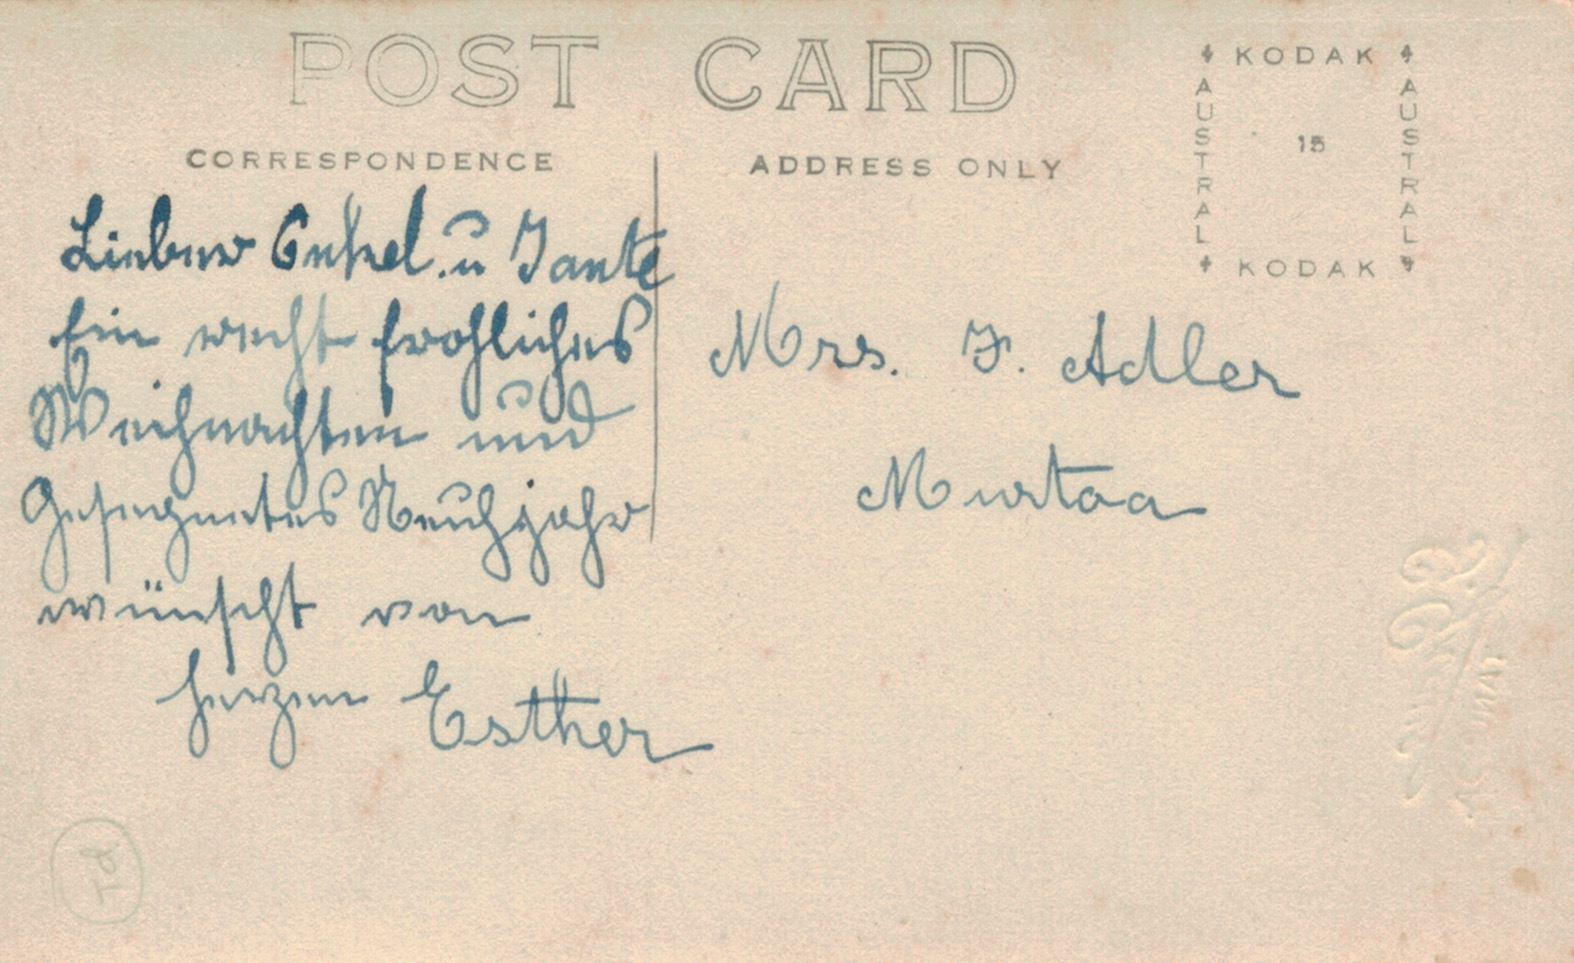 POST CARD
CORRESPONDENCE
ADDRESS ONLY
KODAK
AUSTRAL
15
AUSTRAL
KODAK
Lieber Onkel. u Tante
Ein recht frohliches
Weihnachten und
Gesegnetes Neuhjahr
wünscht von
herzen Esther
Mrs. F. Adler
Murtoa
Td